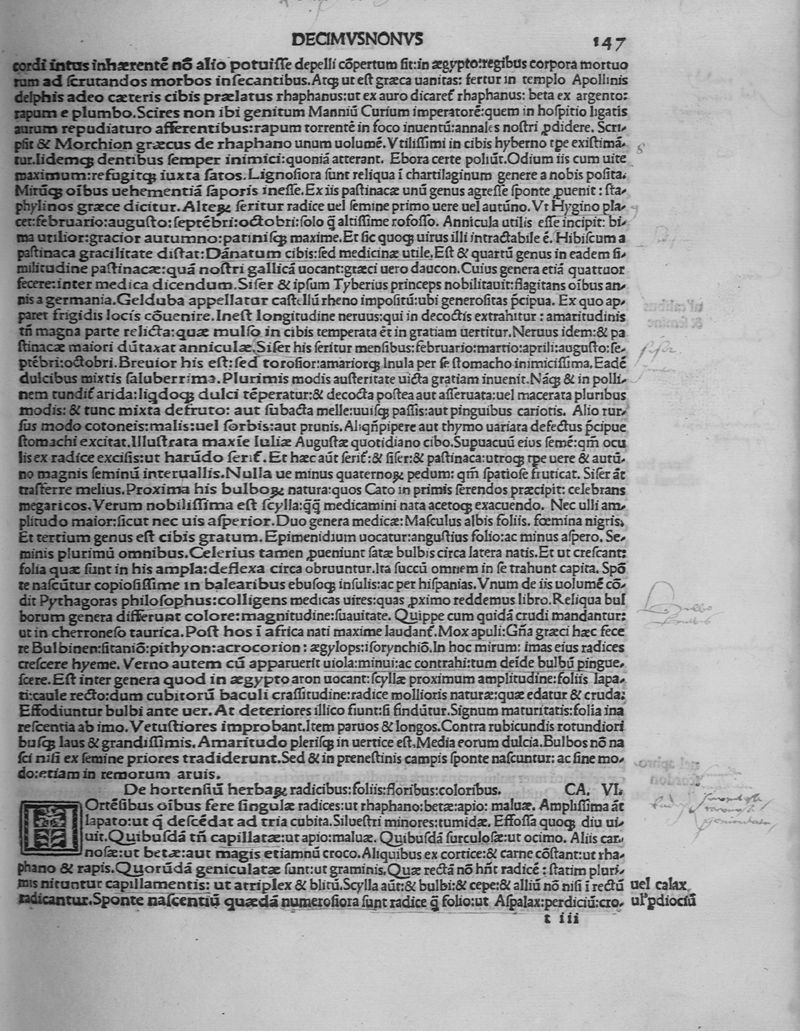 DECIMVSNONVS 147
cordi intus inhærentē nō alio potuisse depelli cōpertum sit:in ægypto:regibus corpora mortuo
rum ad scrutandos morbos insecantibus.Atqꝫ ut est græca uanitas: fertur in templo Apollinis
delphis adeo cæteris cibis prælatus rhaphanus:ut ex auro dicaret̃ rhaphanus: beta ex argento:
rapum e plumbo.Scires non ibi genitum Manniū Curium imperatorē:quem in hospitio ligatis
aurum repudiaturo afferentibus:rapum torrentē in foco inuentū:annales nostri ꝓdidere. Scri-
psit & Morchion græcus de rhaphano unum uolumē.Vtilissimi in cibis hyberno tpe existimā-
tur.Iidemqꝫ dentibus semper inimici:quoniā atterant. Ebora certe poliūt.Odium iis cum uite
maximum:refugitqꝫ iuxta satos.Lignosiora sunt reliqua ī chartilaginum genere a nobis posita.
Mirūqꝫ oībus uehementiā saporis inesse.Ex iis pastinacæ unū genus agreste sponte ꝓuenit : sta-
phylinos græce dicitur. Alteꝝ seritur radice uel semine primo uere uel autūno.Vt Hygino pla-
cet:februario:augusto:septēbri:octobri:solo q̄ altissime rofosso. Annicula utilis esse incipit: bi-
ma utilior:gracior autumno:patinisqꝫ maxime.Et sic quoqꝫ uirus illi intractabile ē. Hibiscum a
pastinaca gracilitate distat:Dānatum cibis:sed medicinæ utile.Est & quartū genus in eadem si-
militudine pastinacæ:quā nostri gallicā uocant:græci uero daucon.Cuius genera etiā quattuor
fecere:inter medica dicendum.Siser & ipsum Tyberius princeps nobilitauit:flagitans oībus an-
nis a germania.Gelduba appellatur castellū rheno impositū:ubi generositas p̄cipua. Ex quo ap-
paret frigidis locis cōuenire.Inest longitudine neruus:qui in decoctis extrahitur : amaritudinis
tn̄ magna parte relicta:quæ mulso in cibis temperata ēt in gratiam uertitur.Neruus idem:& pa
stinacæ maiori dūtaxat anniculæ.Siser his seritur mensibus:februario:martio:aprili:augusto:se-
ptēbri:octobri.Breuior his est:sed torosior:amariorqꝫ Inula per se stomacho inimicissima.Eadē
dulcibus mixtis saluberrima.Plurimis modis austeritate uicta gratiam inuenit.Nāqꝫ & in polli-
nem tundit̃ arida:liqdoqꝫ dulci tēperatur:& decocta postea aut asseruata:uel macerata pluribus
modis: & tunc mixta defruto: aut subacta melle:uuisqꝫ passis:aut pinguibus cariotis. Alio rur-
sus modo cotoneis:malis:uel sorbis:aut prunis.Aliqn̄pipere aut thymo uariata defectus p̄cipue
stomachi excitat.Illustrata maxīe Iuliæ Augustæ quotidiano cibo.Supuacuū eius semē:qm̄ ocu
lis ex radice excisis:ut harūdo serit̃. Et hæc aūt serit̃:& siser:& pastinaca:utroqꝫ tpe uere & autū-
no magnis seminū interuallis.Nulla ue minus quaternoꝝ pedum: qm̄ spatiose fruticat. Siser āt
trāsferre melius.Proxima his bulboꝝ natura:quos Cato in primis serendos præcipit: celebrans
megaricos.Verum nobilissima est scylla:q̄q̄ medicamini nata acetoqꝫ exacuendo. Nec ulli am-
plitudo maior:sicut nec uis asperior.Duo genera medicæ:Masculus albis foliis. fœmina nigris.
Et tertium genus est cibis gratum.Epimenidium uocatur:angustius folio:ac minus aspero. Se-
minis plurimū omnibus.Celerius tamen ꝓueniunt satæ bulbis circa latera natis.Et ut crescant:
folia quæ sunt in his ampla:deflexa circa obruuntur.Ita succū omnem in se trahunt capita. Spō
te nascūtur copiosissime in balearibus ebusoqꝫ insulis:ac per hispanias.Vnum de iis uolumē cō-
dit Pythagoras philosophus:colligens medicas uires:quas ꝓximo reddemus libro.Reliqua bul
borum genera differunt colore:magnitudine:suauitate. Quippe cum quidā crudi mandantur:
ut in cherroneso taurica.Post hos ī africa nati maxime laudant̃.Mox apuli:Gn̄a græci hæc fece
re Bulbinen:sitaniō:pithyon:acrocorion: ægylops:isforynchiō.In hoc mirum: imas eius radices
crescere hyeme. Verno autem cū apparuerit uiola:minui:ac contrahi:tum deīde bulbū pingue-
scere.Est inter genera quod in ægypto aron uocant:scyllæ proximum amplitudine:foliis lapa-
ti:caule recto:dum cubitorū baculi crassitudine:radice mollioris naturæ:quæ edatur & cruda:
Effodiuntur bulbi ante uer. At deteriores illico fiunt:si findūtur.Signum maturitatis:folia ina
rescentia ab imo.Vetustiores improbant.Item paruos & longos.Contra rubicundis rotundiori
busqꝫ laus & grandissimis.Amaritudo plerisqꝫ in uertice est.Media eorum dulcia.Bulbos nō na
sci nisi ex semine priores tradiderunt.Sed & in prenestinis campis sponte nascuntur: ac sine mo-
do:etiam in remorum aruis.
De hortensiū herbaꝝ radicibus:foliis:floribus:coloribus. CA. VI.
Ortēsibus oībus fere singulæ radices:ut rhaphano:betæ:apio: maluæ. Amplissima āt
lapato:ut q̄ descēdat ad tria cubita.Siluestri minores:tumidæ. Effossa quoqꝫ diu ui-
uit.Quibusdā tn̄ capillatæ:ut apio:maluæ. Quibusdā surculosæ:ut ocimo. Aliis car-
nosæ:ut betæ:aut magis etiamnū croco.Aliquibus ex cortice:& carne cōstant:ut rha-
phano & rapis.Quorūdā geniculatæ sunt:ut graminis.Quæ rectā nō hn̄t radicē : statim pluri-
mis nituntur capillamentis: ut atriplex & blitū.Scylla aūt:& bulbi:& cepe:& alliū nō nisi ī rectū uel calax
radicantur.Sponte nascentiū quædā numerosiora sunt radice q̄ folio:ut Aspalax:perdiciū:cro- ul'pdiociū
t iii